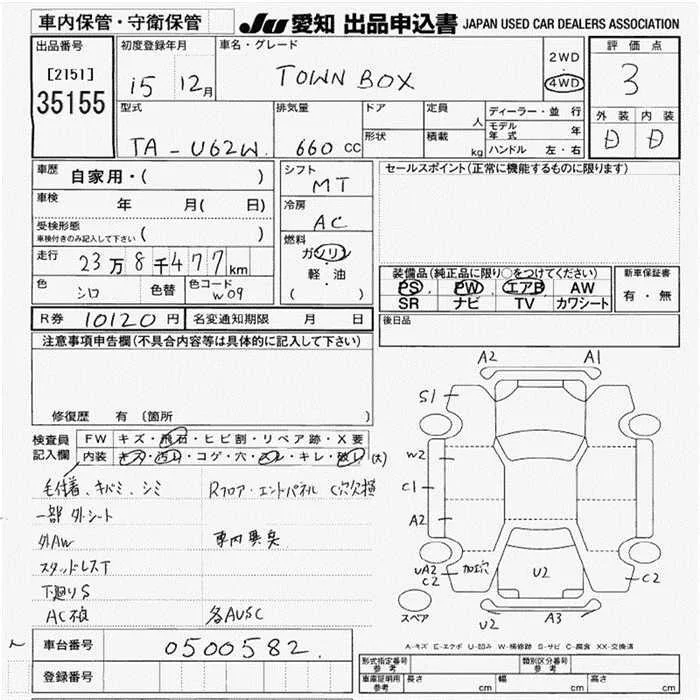 車内保管・守衛保管
JU 愛知 出品申込書 JAPAN USED CAR DEALERS ASSOCIATION
出品番号
[2151]
35155
初度登録年月
i5 12月
車名・グレード
TOWN BOX
2WD
・
4WD
評価点
3
外装 内装
D D
型式
TA-U62W.
排気量
660 CC
ドア
形状
定員
人
積載
kg
ディーラー・並行
モデル年式 年
ハンドル 左・右
車歴
自家用・( )
車検
年 月( 日)
受検形態
車検付きのみ記入して下さい ( )
走行
23万8千477km
色
シロ
色替
色コード
W09
シフト
MT
冷房
AC
燃料
ガソリン
・
軽・油
( )
セールスポイント(正常に機能するものに限ります)
装備品(純正品に限り○をつけてください)
PS PW エアB AW
SR ナビ TV カワシート
新車保証書
有・無
R券 10120円
名変通知期限 月 日
後日品
注意事項申告欄(不具合内容等は具体的に記入して下さい)
修復歴 有〔箇所 〕
検査員
記入欄
FW キズ・飛石・ヒビ割・リペア跡・X要
内装 キズ・汚れ・コゲ・穴・スレ・キレ・破れ (大)
毛付着、キバミ、シミ
Rフロア・エントパネル C穴
一部外シート
外AW
車内異臭
スタッドレスT
下廻りS
AC不良
各AUSC
A2 A1
S1
W2
C1
A2
UA2
C2
加工穴
U2
C2
スペア
U2
A3
車台番号
0500582.
登録番号
A-キズ E-エクボ U-凹み W-補修跡 S-サビ C-腐食 XX-交換済
形式指定番号
参考
類別区分番号
参考
車庫証明用
参考
長さ cm
幅 cm
高さ cm